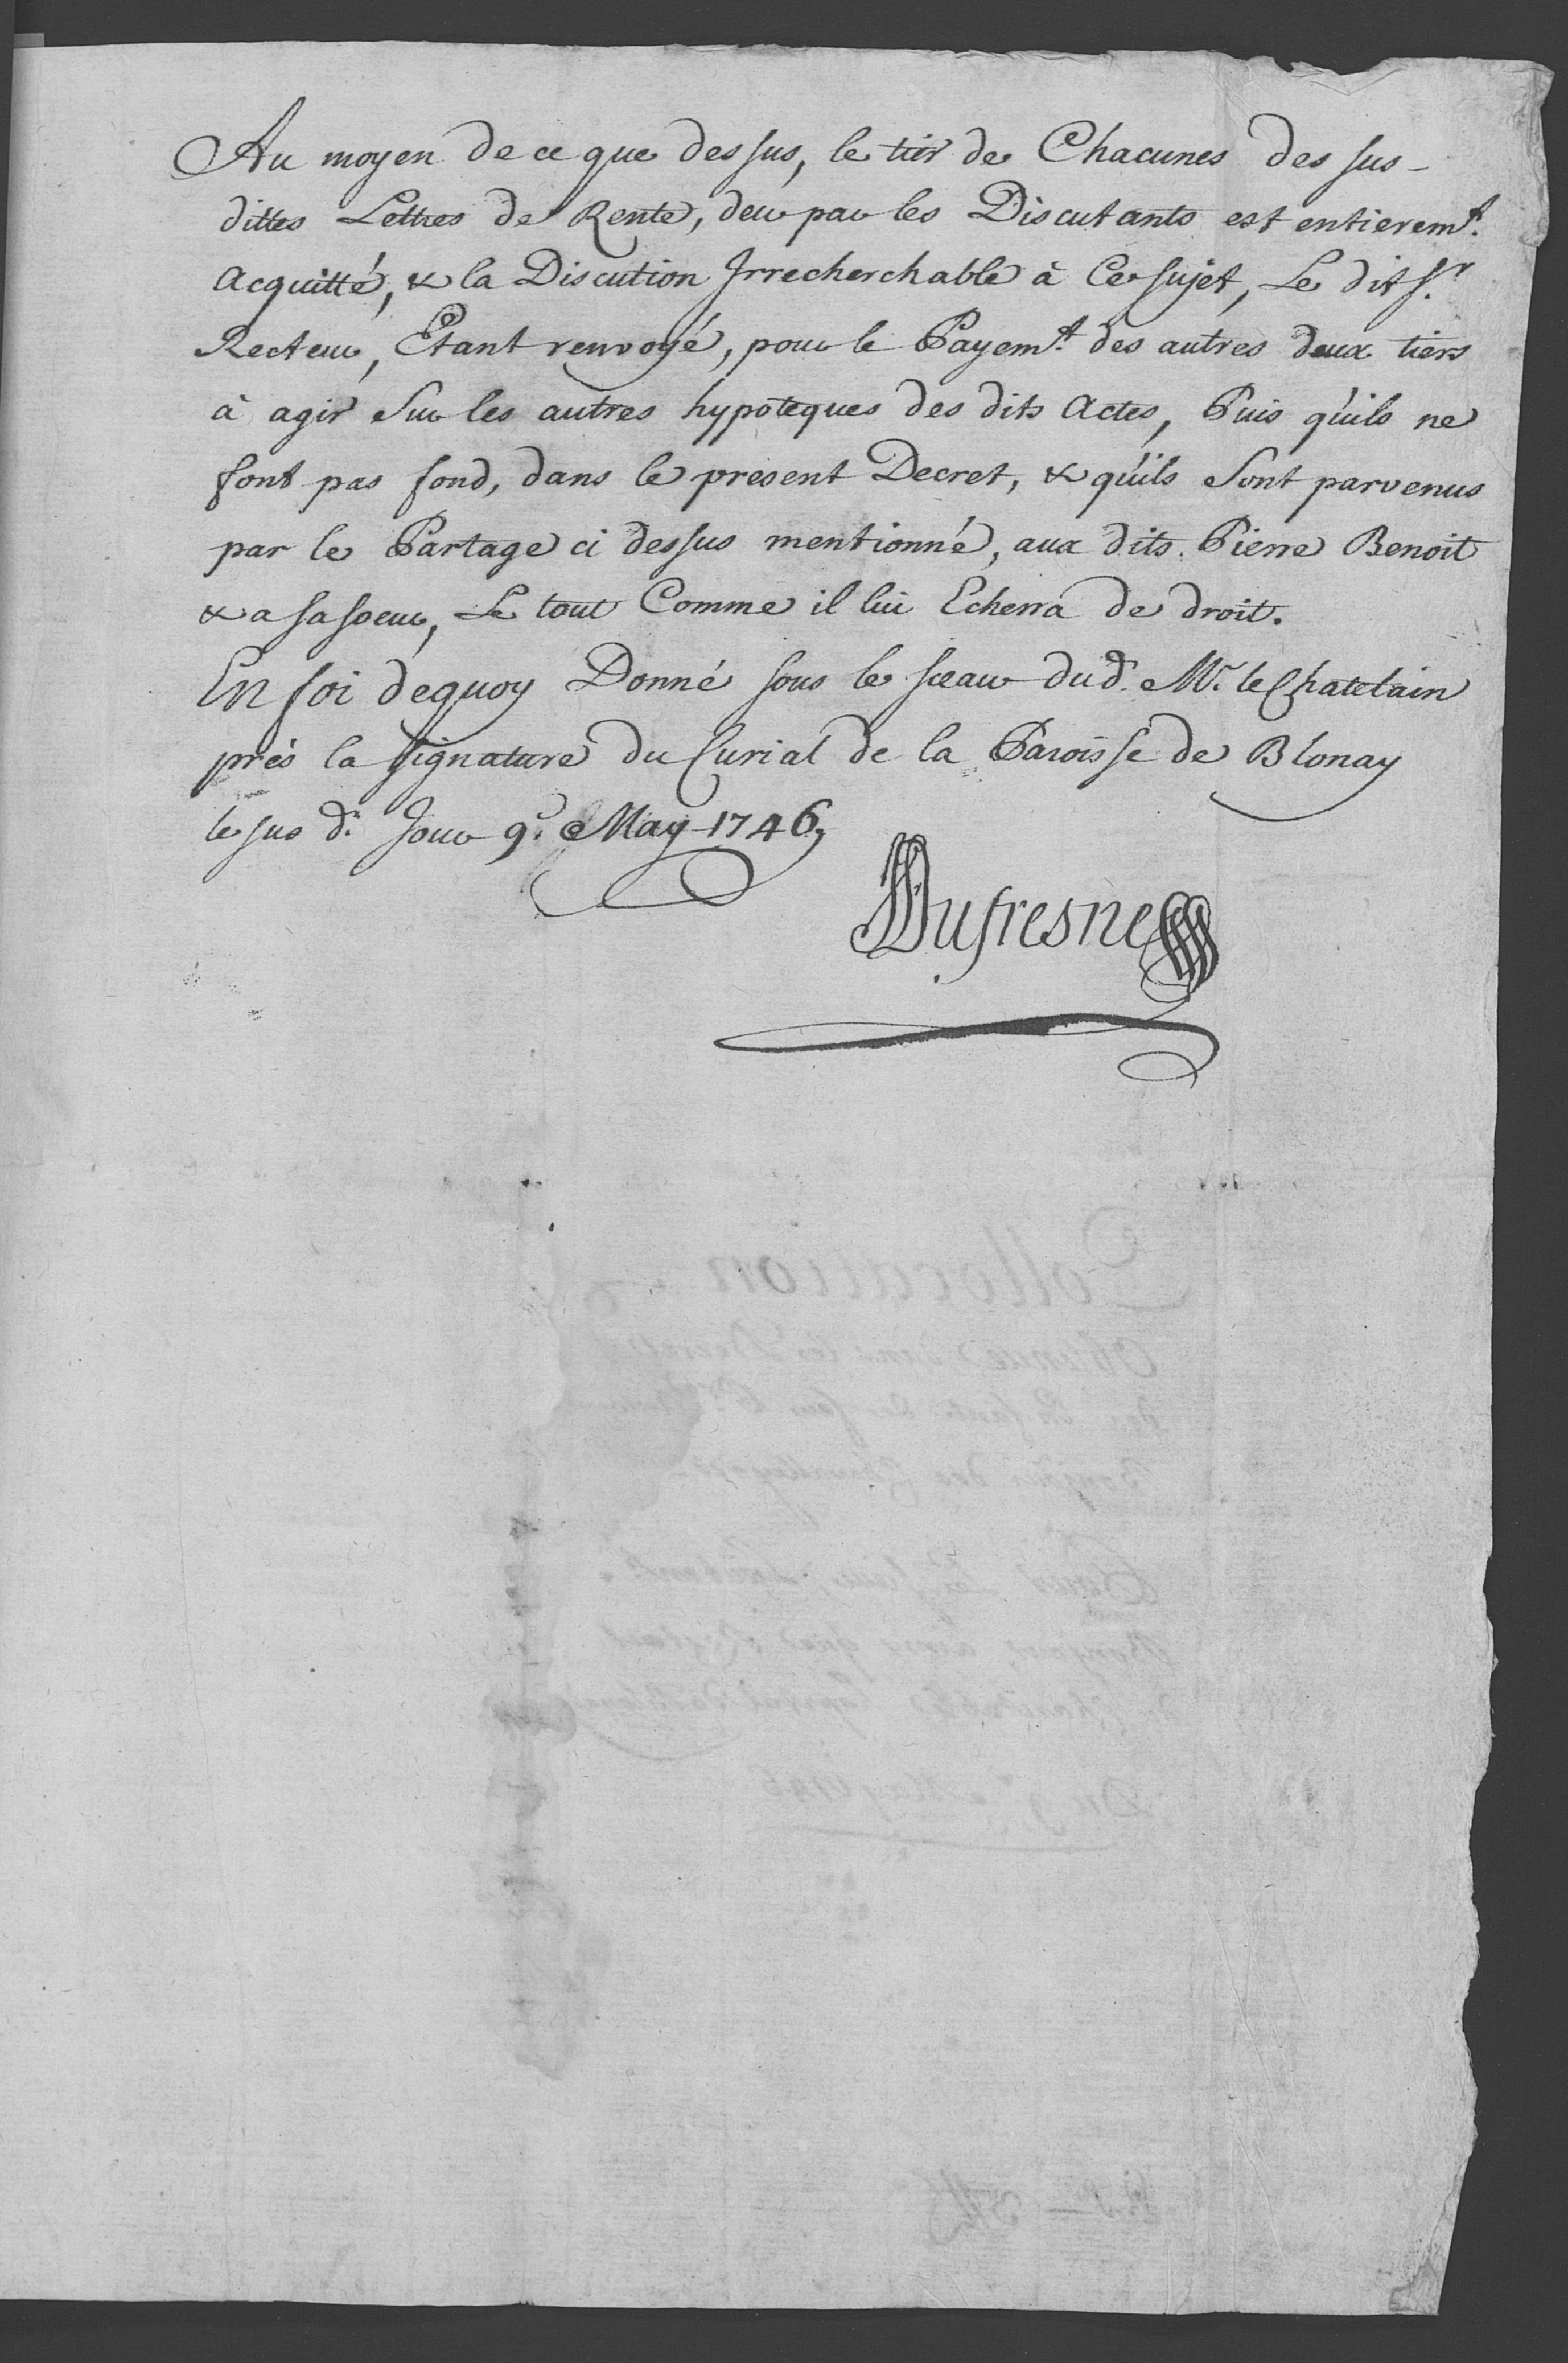 Au moyen de ce que dessus, le tier de Chacunes des sus-
dittes Lettres de Rente, deu par les Discutants est entierem.t
acquitté, & la Discution Irrecherchable à Ce sujet, Le dit S.r
Recteur, Etant renvoyé, pour le Payem.t des autres deux tiers
à agir Sur les autres hypoteques des dits Actes, Puis qu'ils ne
font pas fond, dans le present Decret, & qu'ils Sont parvenus
par le Partage ci dessus mentionné, aux dits Pierre Benoit
& a sa soeur, Le tout Comme il lui Echerra de droit.
En foi dequoy Donné sous le sceau dud. Mr. le Chatelain
près la signature du Curial de la Paroisse de Blonay
le sus d. Jour 9.e May 1746,
Dufresne